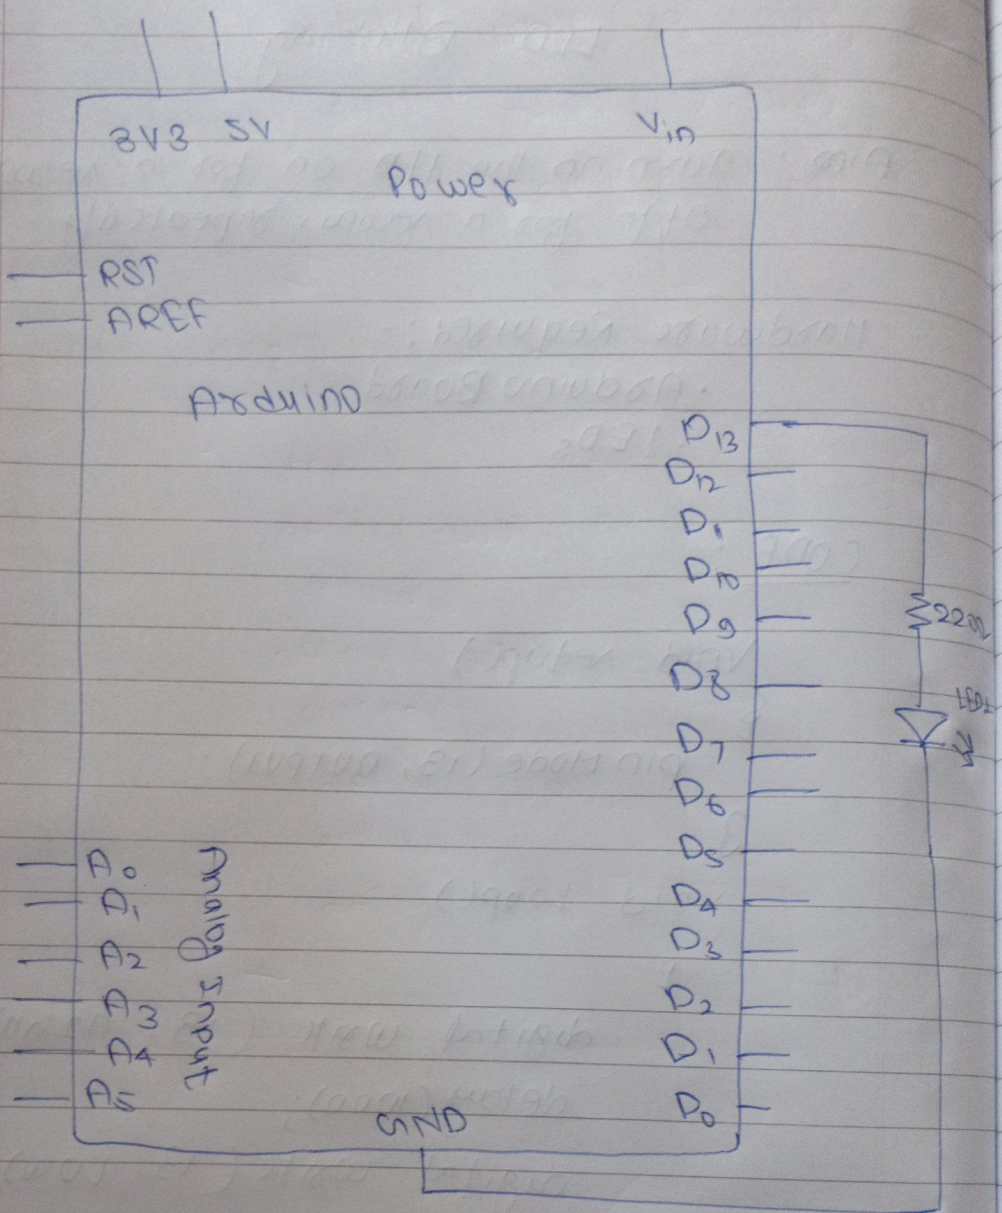 3V3 5V Vin
Power
RST
AREF
Arduino
D13
D12
D1
D10
D9
220Ω
D8
LED1
D7
D6
D5
D4
D3
D2
D1
D0
A0
A1
A2
A3
A4
A5
Analog Input
GND